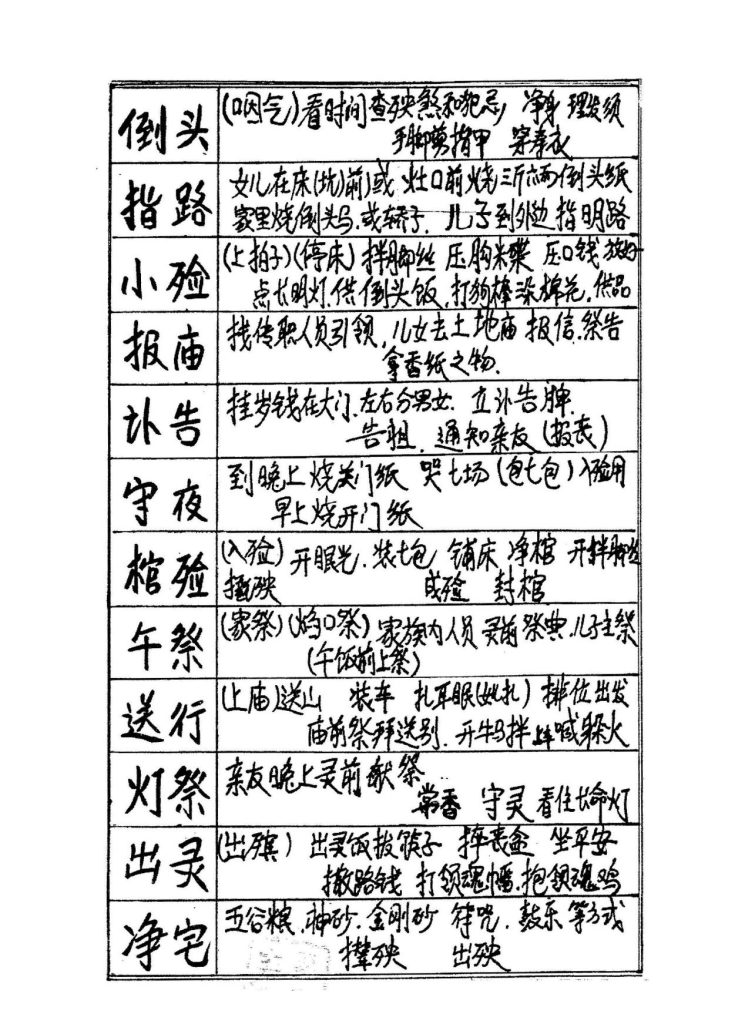 倒头
(咽气)看时间查殃煞和犯忌 净身 理发须
手脚剪指甲 穿寿衣
指路
女儿在床(坑)前)或 灶口前烧三斤六两倒头纸
家里烧倒头马.或轿子. 儿子到外边指明路
小殓
(上拍子)(停床) 拌脚丝 压胸米 压口钱 放好
点长明灯.供倒头饭,打狗棒染棉花,供品
报庙
找传职人员引领,儿女去土地庙 报信.祭告
拿香纸之物.
讣告
挂岁钱在大门.左右分男女. 立讣告牌.
告祖. 通知亲友(报丧)
守夜
到晚上烧关门纸 哭七场(包七包)入殓用
早上烧开门纸
棺殓
(入殓) 开眼光.装七包 铺床 净棺 开拌脚丝
殃 成殓 封棺
午祭
(家祭)(焰口祭) 家族内人员 灵前祭典.儿子主祭
(午饭前上祭)
送行
(上庙)送山 装车 扎耳眼(女扎) 排位出发
庙前祭拜送别. 开牛马拌 上车喊躲火
灯祭
亲友晚上灵前献祭
常香 守灵 看住长命灯
出灵
(出殡) 出灵饭拔筷子 摔丧盆 坐平安
撒路钱 打领魂幡.抱领魂鸡
净宅
五谷粮.神砂.金刚砂 符咒. 鼓乐等方式
撵殃 出殃